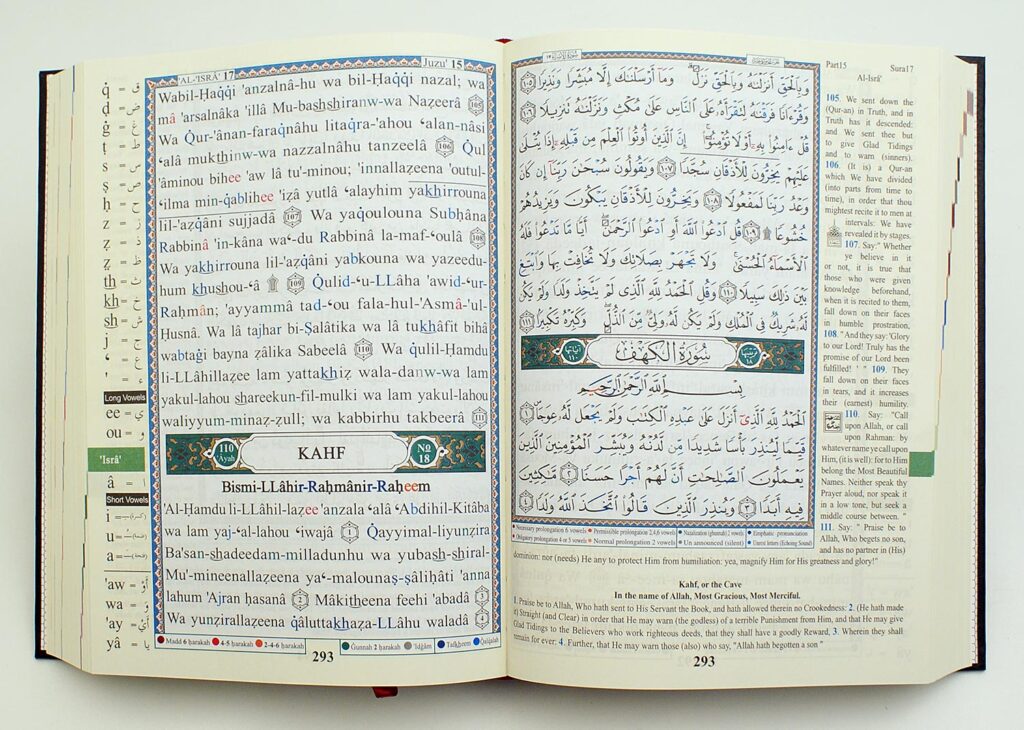 'AL-'ISRÂ' 17
Juzu' 15
Wabil-Ḥaqqi 'anzalnâ-hu wa bil-Ḥaqqi nazal; wa
mâ 'arsalnâka 'illâ Mu-bashshiranw-wa Nazeerâ 105
Wa Qur-'ânan-faraqnâhu litaqra-'ahou 'alan-nâsi
'alâ mukthinw-wa nazzalnâhu tanzeelâ 106 Qul
'âminou bihee 'aw lâ tu'-minou; 'innallazeena 'outul-
'ilma min-qablihee 'izâ yutlâ 'alayhim yakhirrouna
lil-'azqâni sujjadâ 107 Wa yaqoulouna Subḥâna
Rabbinâ 'in-kâna wa'-du Rabbinâ la-maf-'oulâ 108
Wa yakhirrouna lil-'azqâni yabkouna wa yazeedu-
hum khushou-'â 109 Qulid-'u-LLâha 'awid-'ur-
Raḥmân; 'ayyammâ tad-'ou fala-hul-'Asmâ-'ul-
Ḥusnâ. Wa lâ tajhar bi-Ṣalâtika wa lâ tukhâfit bihâ
wabtaği bayna zâlika Sabeelâ 110 Wa qulil-Ḥamdu
li-LLâhillazee lam yattakhiz wala-danw-wa lam
yakul-lahou shareekun-fil-mulki wa lam yakul-lahou
waliyyum-minaz-zull; wa kabbirhu takbeerâ 111
110 Âyah
KAHF
No 18
Bismi-LLâhir-Raḥmânir-Raḥeem
'Al-Ḥamdu li-LLâhil-lazee 'anzala 'alâ 'Abdihil-Kitâba
wa lam yaj-'al-lahou 'iwajâ 1 Qayyimal-liyunzira
Ba'san-shadeedam-milladunhu wa yubash-shiral-
Mu'-mineenallazeena ya'-malounaṣ-ṣâliḥâti 'anna
lahum 'Ajran ḥasanâ 2 Mâkitheena feehi 'abadâ 3
Wa yunzirallazeena qâluttakhaza-LLâhu waladâ 4
Madd 6 ḥarakah 4-5 ḥarakah 2-4-6 ḥarakah Ğunnah 2 ḥarakah 'Idğâm Tafkheem Qalqalah
293
q = ق
ḍ = ض
ğ = غ
ṭ = ط
ṣ = ص
ḥ = ح
z = ز
z = ذ
ẓ = ظ
th = ث
kh = خ
sh = ش
j = ج
' = ع
' = ء
Long Vowels
ee = ي
ou = و
'Isrâ'
â = ا
Short Vowels
i =
u =
a =
'aw = أَوْ
wa = وَ
'ay = أَيْ
yâ = يا
وَبِالْحَقِّ أَنزَلْنَاهُ وَبِالْحَقِّ نَزَلَ ۗ وَمَا أَرْسَلْنَاكَ إِلَّا مُبَشِّرًا وَنَذِيرًا ١٠٥
وَقُرْءَانًا فَرَقْنَاهُ لِتَقْرَأَهُ عَلَى النَّاسِ عَلَىٰ مُكْثٍ وَنَزَّلْنَاهُ تَنزِيلًا ١٠٦
قُلْ ءَامِنُوا بِهِ أَوْ لَا تُؤْمِنُوا ۚ إِنَّ الَّذِينَ أُوتُوا الْعِلْمَ مِن قَبْلِهِ إِذَا يُتْلَىٰ
عَلَيْهِمْ يَخِرُّونَ لِلْأَذْقَانِ سُجَّدًا ١٠٧ وَيَقُولُونَ سُبْحَانَ رَبِّنَا إِن كَانَ
وَعْدُ رَبِّنَا لَمَفْعُولًا ١٠٨ وَيَخِرُّونَ لِلْأَذْقَانِ يَبْكُونَ وَيَزِيدُهُمْ
خُشُوعًا ۩ ١٠٩ قُلِ ادْعُوا اللَّهَ أَوِ ادْعُوا الرَّحْمَٰنَ ۖ أَيًّا مَّا تَدْعُوا فَلَهُ
الْأَسْمَاءُ الْحُسْنَىٰ ۚ وَلَا تَجْهَرْ بِصَلَاتِكَ وَلَا تُخَافِتْ بِهَا وَابْتَغِ
بَيْنَ ذَٰلِكَ سَبِيلًا ١١٠ وَقُلِ الْحَمْدُ لِلَّهِ الَّذِي لَمْ يَتَّخِذْ وَلَدًا وَلَمْ يَكُن
لَّهُ شَرِيكٌ فِي الْمُلْكِ وَلَمْ يَكُن لَّهُ وَلِيٌّ مِّنَ الذُّلِّ ۖ وَكَبِّرْهُ تَكْبِيرًا ١١١
آياتها ١١٠
سُورَةُ الْكَهْفِ
ترتيبها ١٨
بِسْمِ اللَّهِ الرَّحْمَٰنِ الرَّحِيمِ
الْحَمْدُ لِلَّهِ الَّذِي أَنزَلَ عَلَىٰ عَبْدِهِ الْكِتَابَ وَلَمْ يَجْعَل لَّهُ عِوَجًا ١
قَيِّمًا لِّيُنذِرَ بَأْسًا شَدِيدًا مِّن لَّدُنْهُ وَيُبَشِّرَ الْمُؤْمِنِينَ الَّذِينَ
يَعْمَلُونَ الصَّالِحَاتِ أَنَّ لَهُمْ أَجْرًا حَسَنًا ٢ مَّاكِثِينَ
فِيهِ أَبَدًا ٣ وَيُنذِرَ الَّذِينَ قَالُوا اتَّخَذَ اللَّهُ وَلَدًا ٤
Necessary prolongation 6 vowels Permissible prolongation 2,4,6 vowels Nazalization (ghunnah) 2 vowels Emphatic pronunciation
Obligatory prolongation 4 or 5 vowels Normal prolongation 2 vowels Un announced (silent) Unrest letters (Echoing Sound)
Part15 Sura17
Al-Isrâ'
105. We sent down the
(Qur-an) in Truth, and in
Truth has it descended:
and We sent thee but
to give Glad Tidings
and to warn (sinners).
106. (It is) a Qur-an
which We have divided
(into parts from time to
time), in order that thou
mightest recite it to men at
intervals: We have
revealed it by stages.
107. Say:" Whether
ye believe in it
or not, it is true that
those who were given
knowledge beforehand,
when it is recited to them,
fall down on their faces
in humble prostration,
108. "And they say:'Glory
to our Lord! Truly has the
promise of our Lord been
fulfilled! ' " 109. They
fall down on their faces
in tears, and it increases
their (earnest) humility.
110. Say: "Call
upon Allah, or call
upon Rahman: by
whatever name ye call upon
Him, (it is well): for to Him
belong the Most Beautiful
Names. Neither speak thy
Prayer aloud, nor speak it
in a low tone, but seek a
middle course between. "
111. Say: " Praise be to
Allah, Who begets no son,
and has no partner in (His)
dominion: nor (needs) He any to protect Him from humiliation: yea, magnify Him for His greatness and glory!"
Kahf, or the Cave
In the name of Allah, Most Gracious, Most Merciful.
1. Praise be to Allah, Who hath sent to His Servant the Book, and hath allowed therein no Crookedness: 2. (He hath made
it) Straight (and Clear) in order that He may warn (the godless) of a terrible Punishment from Him, and that He may give
Glad Tidings to the Believers who work righteous deeds, that they shall have a goodly Reward, 3. Wherein they shall
remain for ever: 4. Further, that He may warn those (also) who say, "Allah hath begotten a son "
293